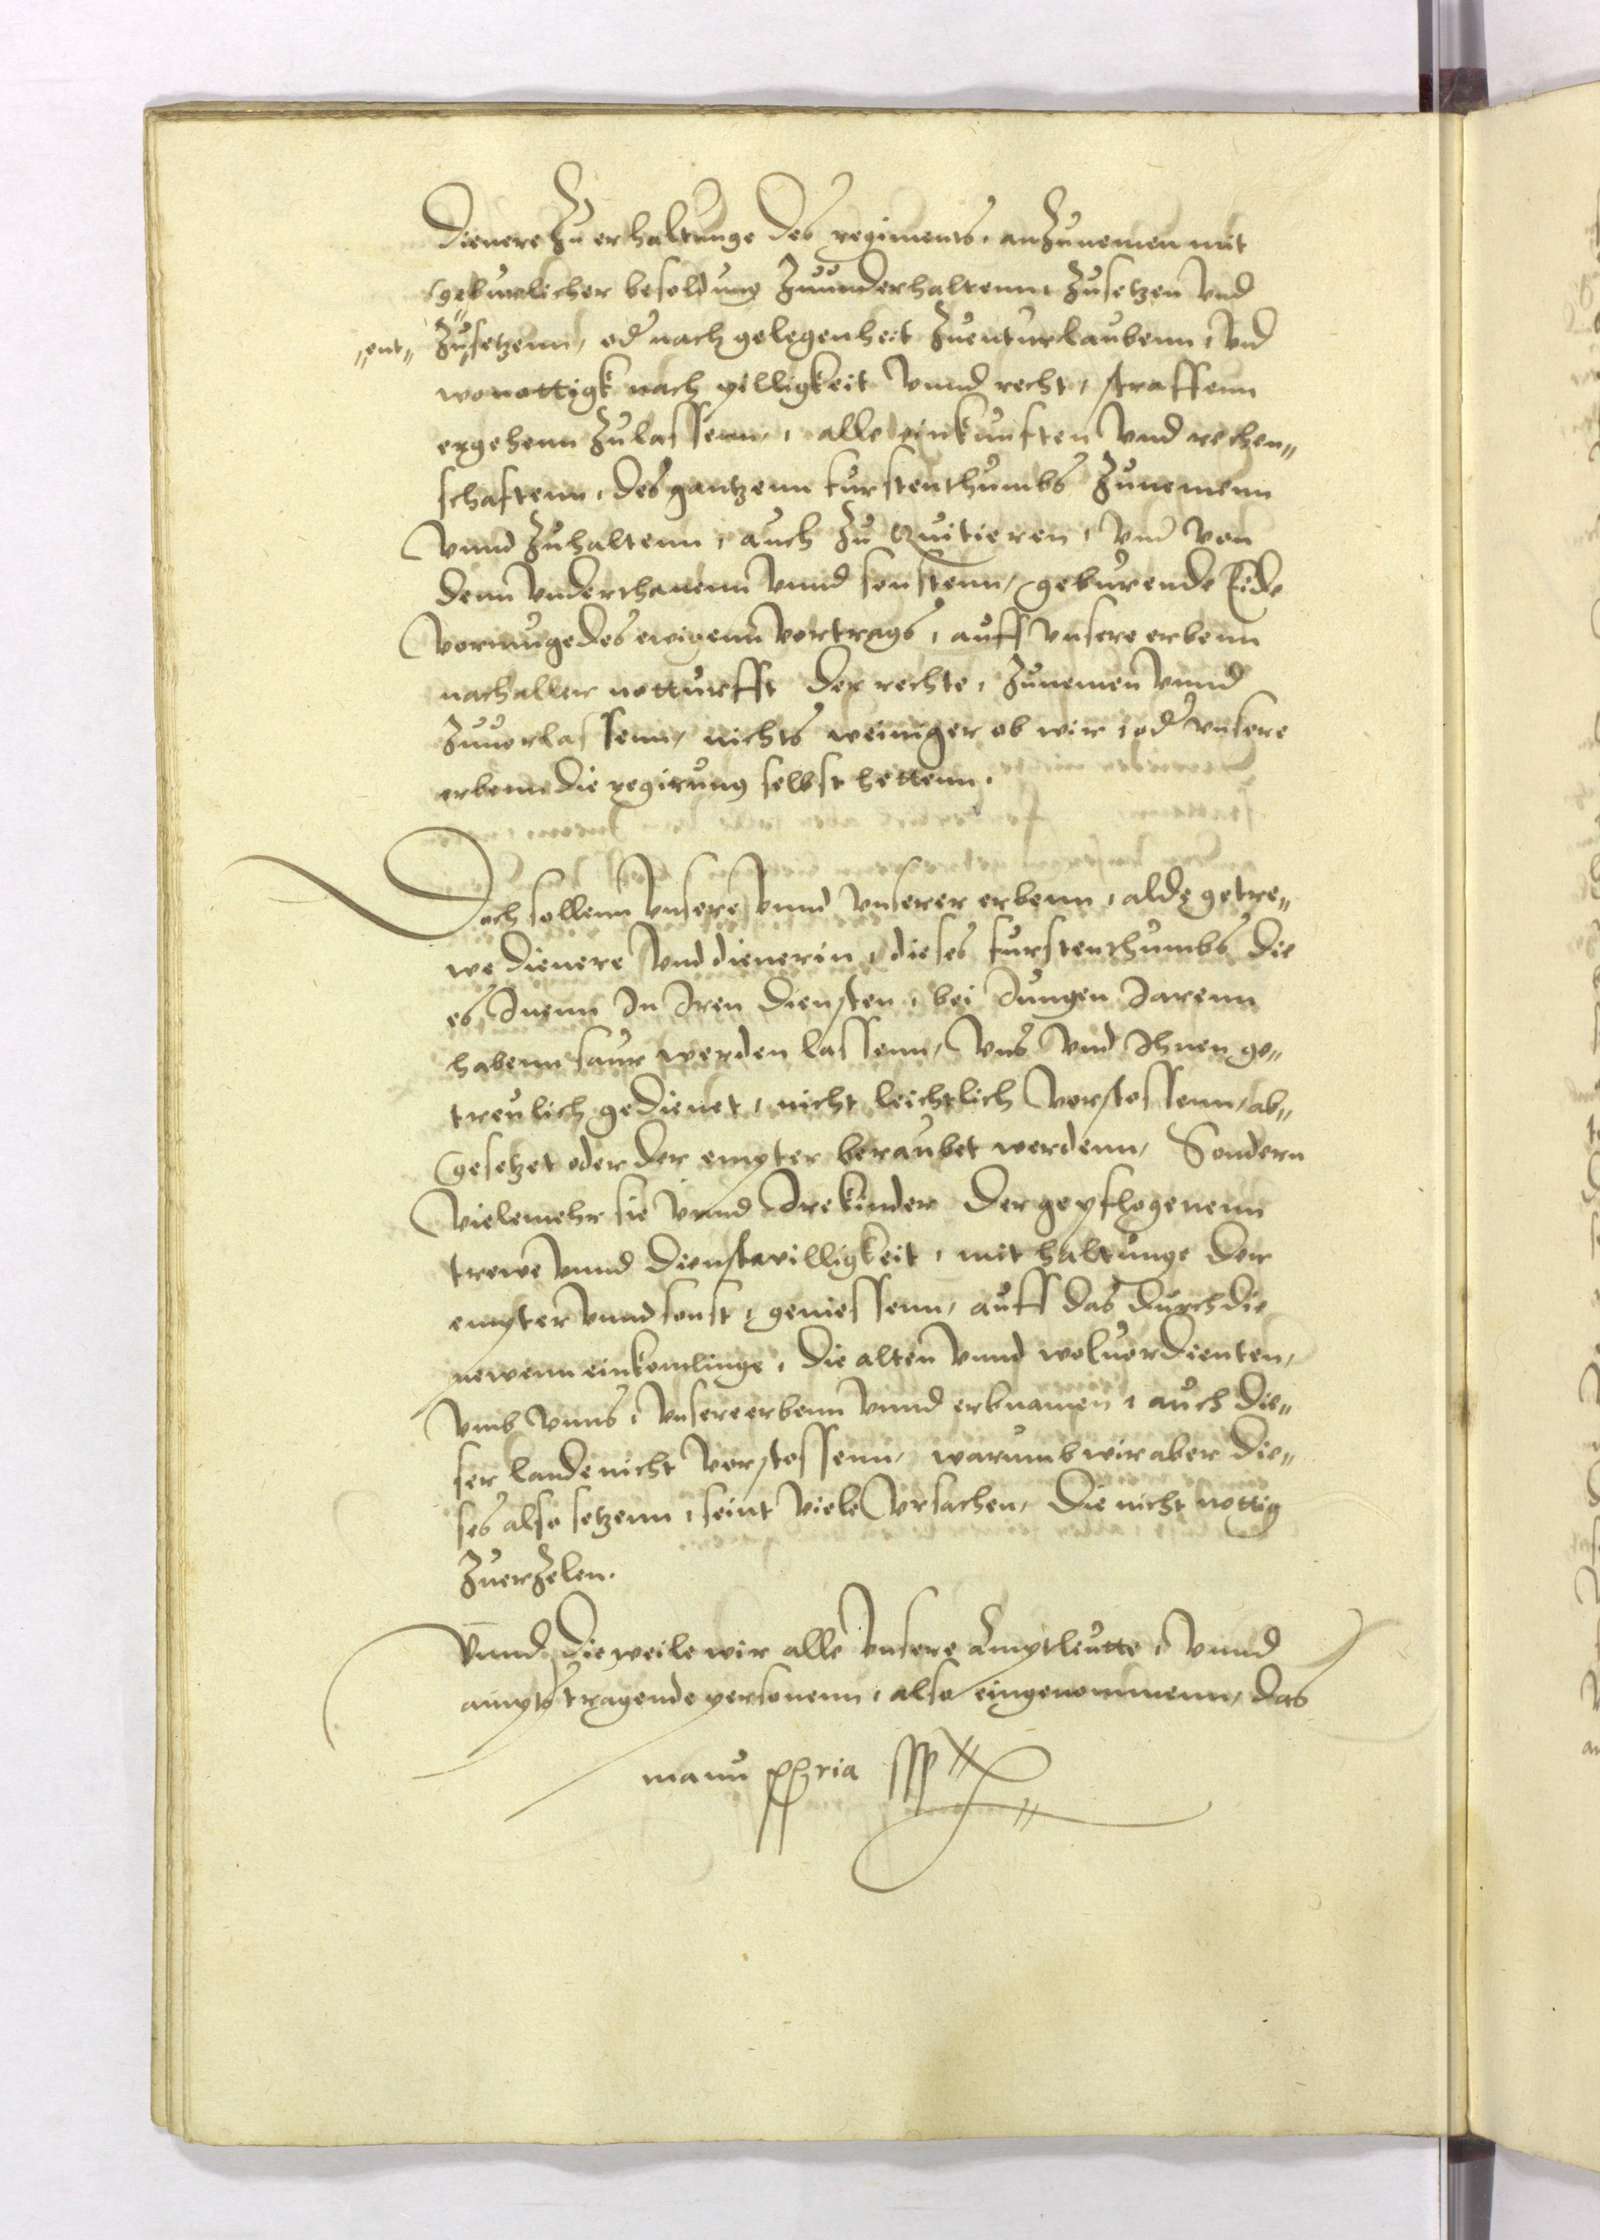 dienere zu erhaltunge des regiments, anzunemen mit
geburlicher besoldung zuunderhaltenn, zusetzen vnd
"ent" zusetzenn, oder nach gelegenheit zuenturlaubenn, vnd
wo nottigk nach pilligkeit vnnd recht, straffenn
ergehenn zulassenn, alle einkunfften vnd rechen„
schafftenn, des gantzenn furstenthumbs zunemenn
vnnd zuhaltenn, auch zu quitieren, vnd von
denn vnderthanenn vnnd sonstenn, geburende Eide
vormuge des ewigenn vortrags, auff vnsere erbenn
nach aller notturfft der rechte, zunemen vnnd
zuuerlassenn, nichts weiniger ob wir, oder vnsere
erbenn die regirung selbst hettenn.
Doch sollenn vnsere vnnd vnserer erbenn, alde getre„
we dienere vnd dienerin, dieses furstenthumbs die
es Inenn In Iren diensten, bei Jungen Jarenn
habenn saur werden lassenn, vns vnd Ihnen ge„
treulich gedienet, nicht leichtlich vorstossenn, ab„
gesetzet oder der empter beraubet werdenn, Sondern
vielemehr sie vnnd Ire kinder der gepflogenenn
trewe vnnd dienstwilligkeit, mit haltunge der
empter vnnd sonst, geniessenn, auff das durch die
newenn einkomlinge, die alten vnnd woluerdienten,
vmb vnns, vnsere erbenn vnnd erbnamen, auch die„
ser lande nicht vorstossenn, warumb wir aber die„
ses also setzenn, seint viele vrsachen, die nicht nottig
zuerzelen.
Vnnd dieweile wir alle vnsere Amptleutte, vnnd
ampts tragende personenn, also eingenommenn, das
manu ppria sspp